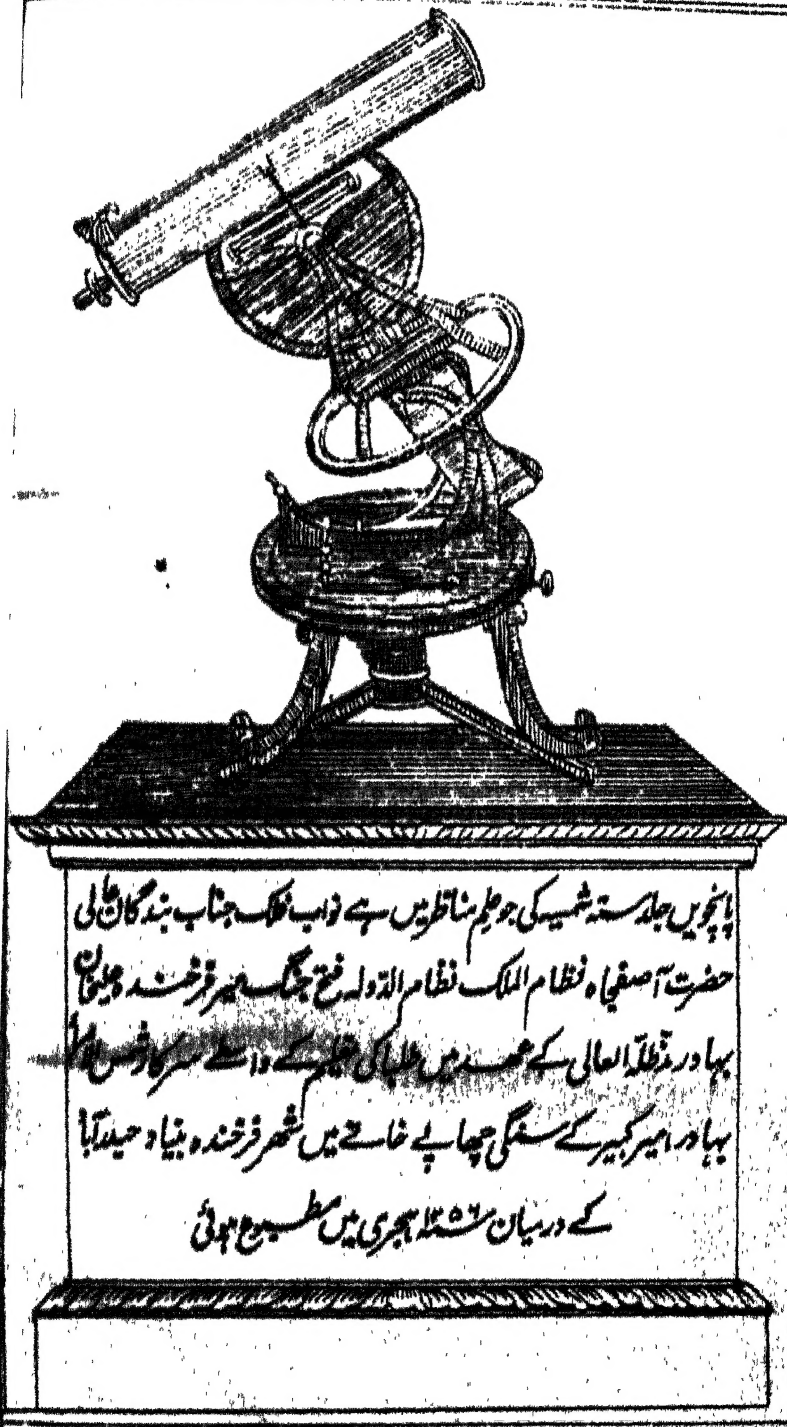 پانچویں جلد ستہ شمسیہ کی جو علم مناظر میں ہے نواب فلک جناب بندگان عالی
حضرت آصفجاہ نظام الملک نظام الدولہ فتح جنگ میر فرخندہ علیخان
بہادر مدظلہ العالی کے عہد میں طلبا کی تعلیم کے واسطے سرکار شمس الامرا
بہادر امیر کبیر کے سنگی چھاپے خانے میں شہر فرخندہ بنیاد حیدرآباد
کے درمیان ۱۲۵۶ ہجری میں مطبوع ہوئی